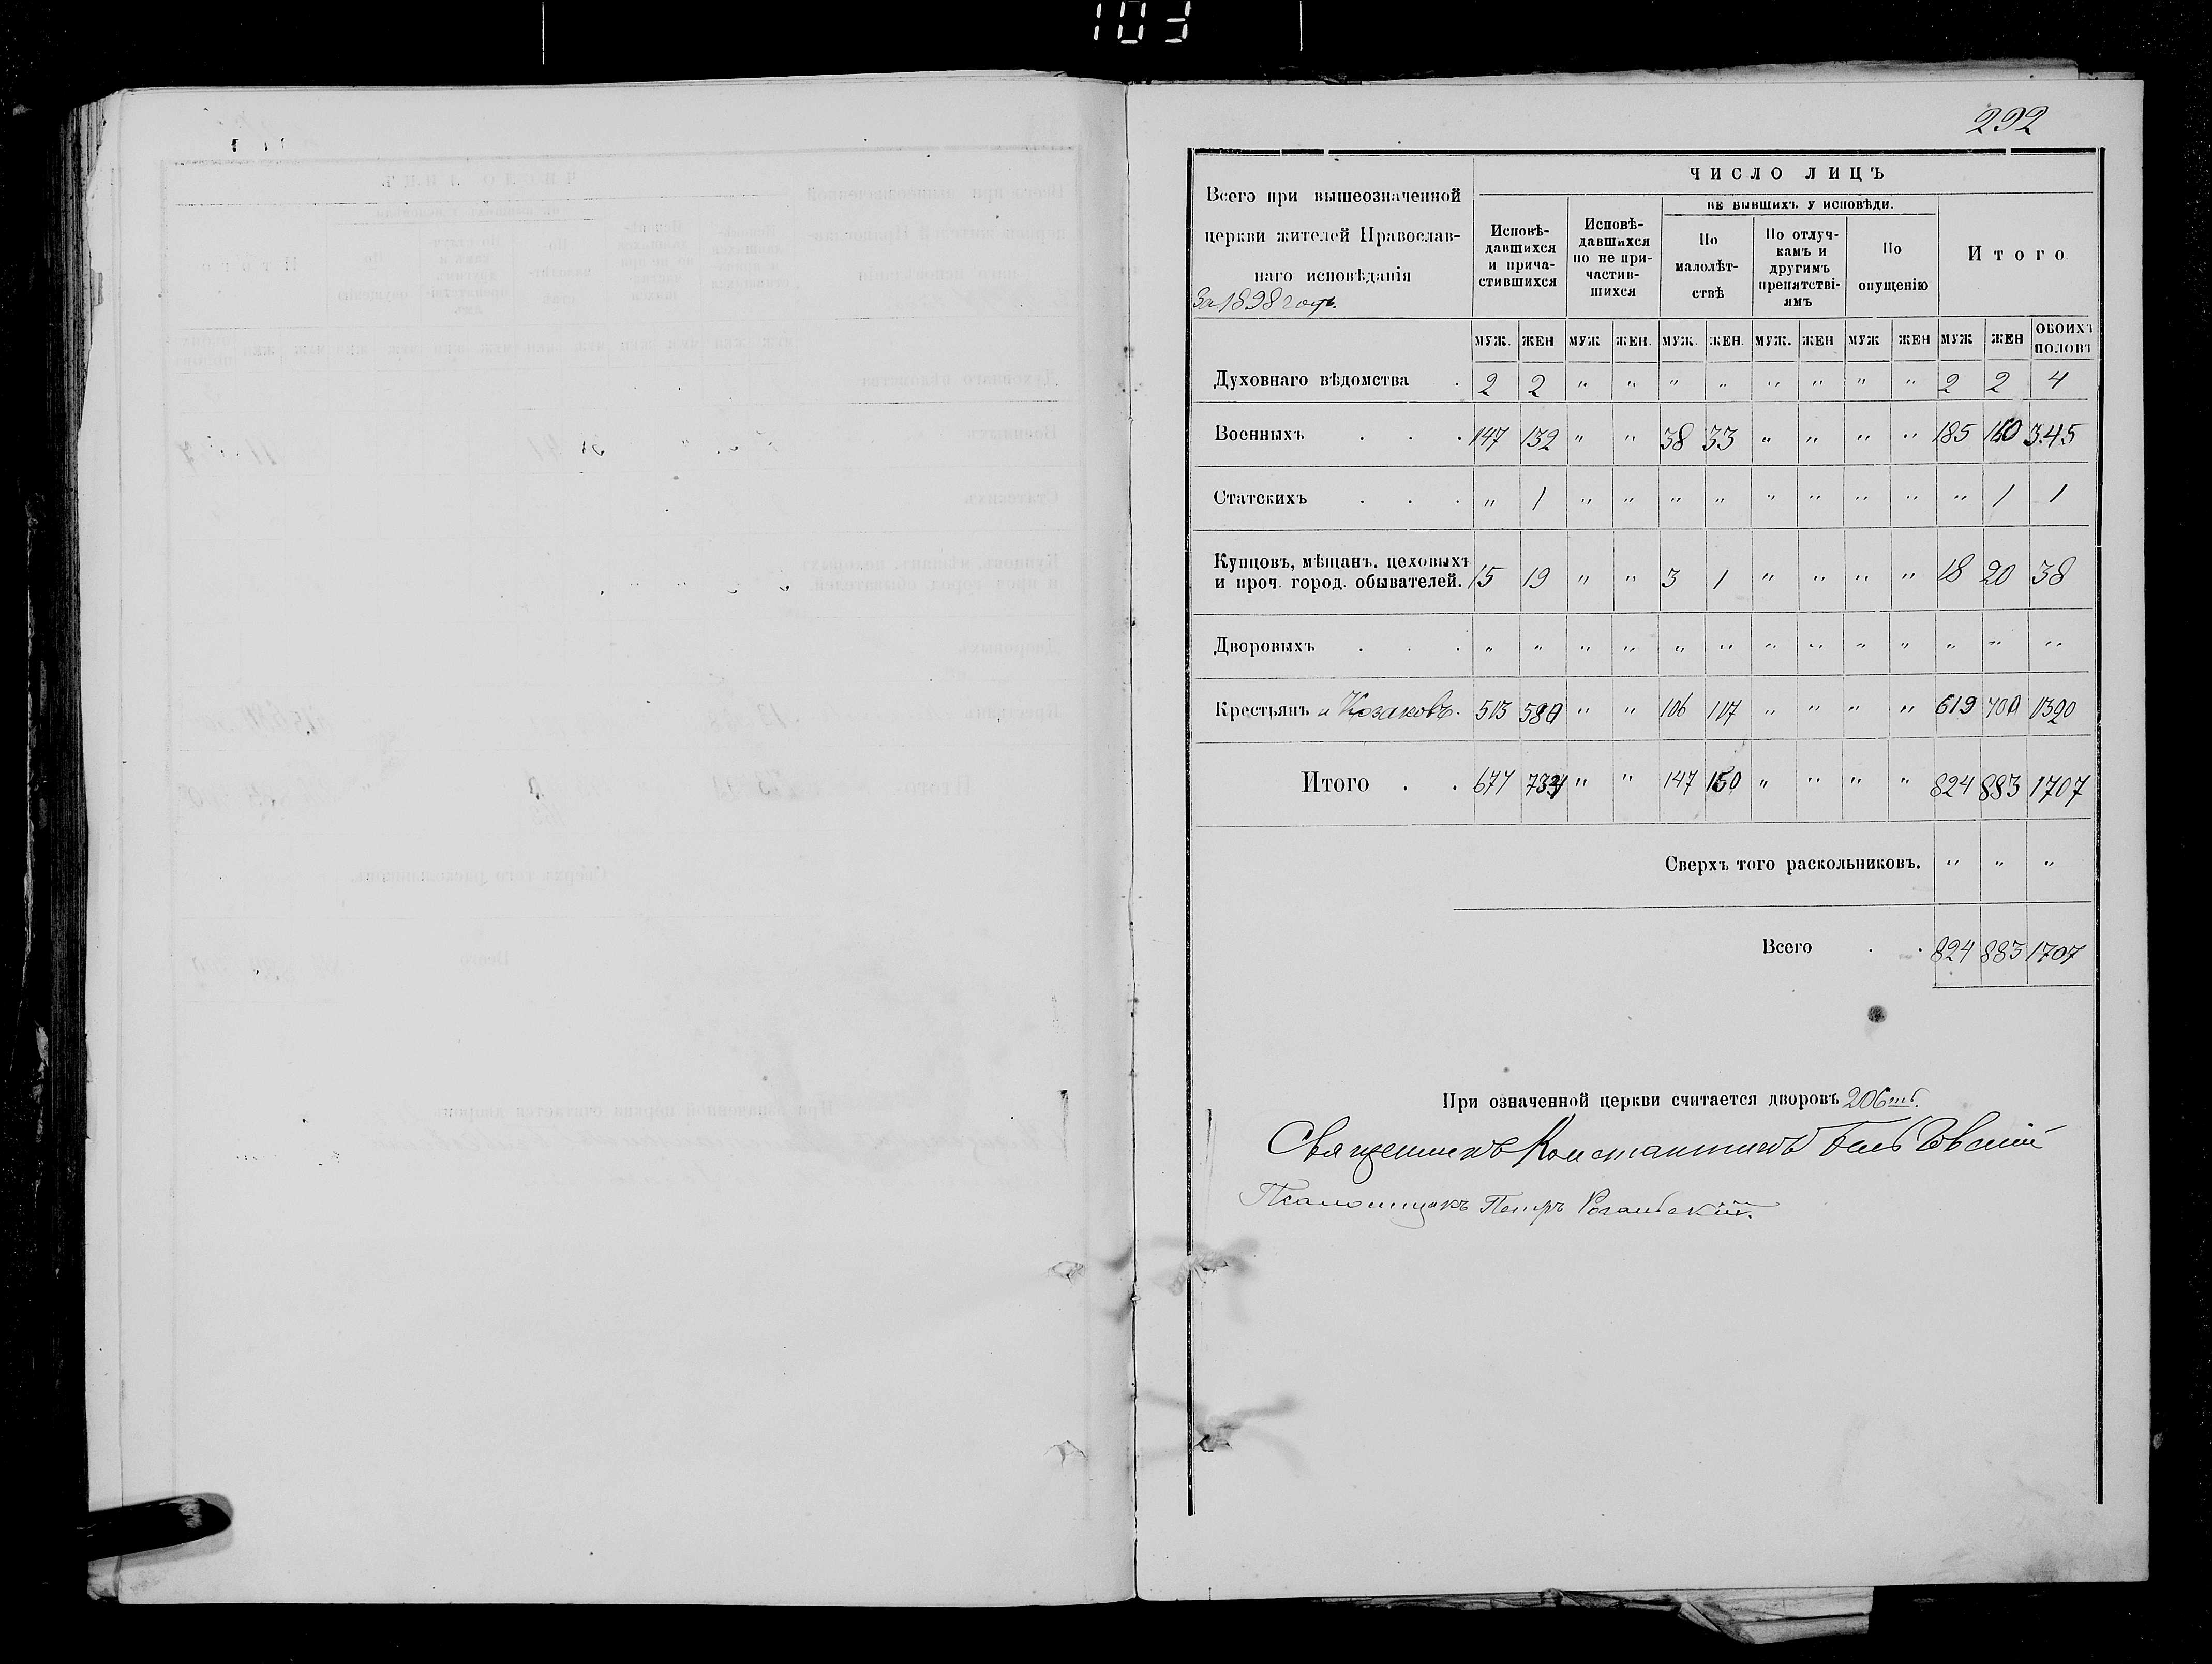 103
292
ЧИСЛО ЛИЦЪ
Всего при вышеозначенной
церкви жителей Православ-
наго исповѣданія
За 1898 годъ.
Исповѣ-
давшихся
и прича-
стившихся
Исповѣ-
давшихся
но не при-
частив-
шихся
НЕ БЫВШИХЪ У ИСПОВѢДИ.
По
малолѣт-
ствѣ
По отлуч-
камъ и
другимъ
препятстві-
ямъ
По
опущенію
Итого
МУЖ. ЖЕН МУЖ ЖЕН. МУЖ. ЖЕН. МУЖ. ЖЕН МУЖ ЖЕН МУЖ ЖЕН ОБОИХЪ ПОЛОВЪ
Духовнаго вѣдомства . 2 2 " " " " " " " " 2 2 4
Военныхъ . . . 147 132 " " 38 33 " " " " 185 160 345
Статскихъ . . . " 1 " " " " " " " " " 1 1
Купцовъ, мѣщанъ, цеховыхъ
и проч. город. обывателей. 15 19 " " 3 1 " " " " 18 20 38
Дворовыхъ . . . " " " " " " " " " " " " "
Крестьянъ и Козаковъ. 513 " " 106 107 " " " " 619
Итого . . 677 " " 147 150 " " " " 824 883 1707
Сверхъ того раскольниковъ. " " "
Всего . . 824 883 1707
При означенной церкви считается дворовъ 206ть.
Священникъ Константинъ
Псаломщикъ Петръ